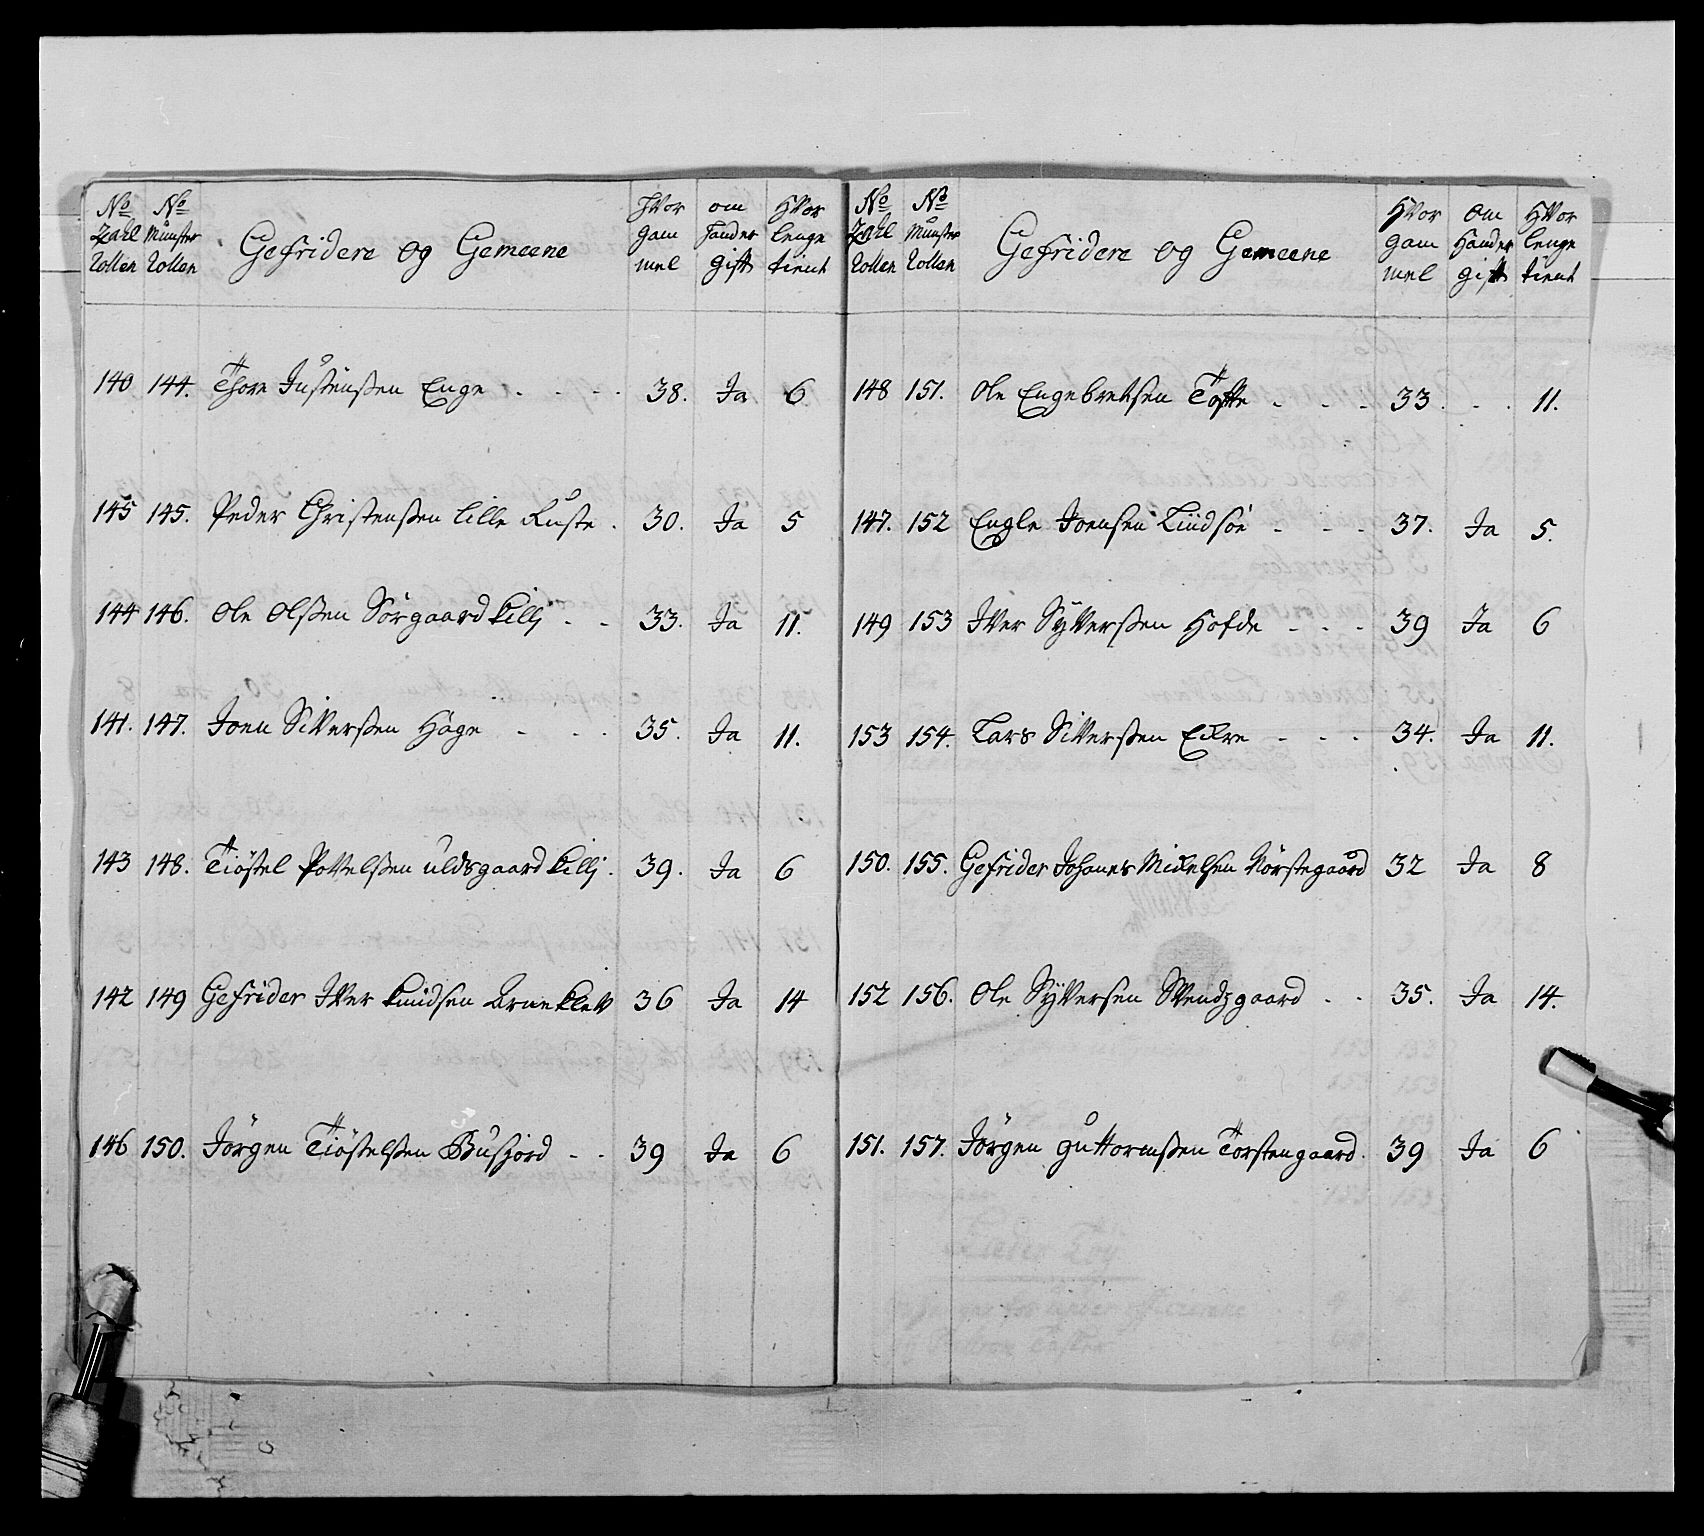 No Zahl Rollen | No Munster Rollen | Gefridere og Gemeene | Hvor gam mel | om hander gift | Hvor lenge tient
140 144. Thore Justensen Enge . . . . 38. Ja 6
145 145. Peder Christenßen Lille Ruste . 30. Ja 5
144 146. Ole Olßen Sörgaard Killj . . 33. Ja 11.
141. 147. Joen Siverßen Hage . . . 35. Ja 11.
143 148. Tiöstel Povelßen uldsgaard Killj . 39. Ja 6
142 149 Gefrider Iver Knudsen Arneklev 36 Ja 14
146 150. Jörgen Tiöstelßen Busjord . . 39 Ja 6
No Zahl Rollen | No Munster Rollen | Gefridere og Gemeene | Hvor gam mel | Om Hander gift | Hvor lenge tient
148 151. Ole Engebretsen Tofte . . . 33. . . 11.
147. 152 Engle Joensen Lindsöe . . . 37. Ja 5.
149 153 Iver Syverßen Hofde . . . 39 Ja 6
153 154. Lars Siverßen Eckre . . . 34. Ja 11.
150. 155. Gefrider Johanes Mickelsen Nörstegaard 32 Ja 8
152 156. Ole Syversen Svendzgaard . . 35. Ja 14.
151. 157. Jörgen Guttormßen Torstengaard. 39 Ja 6